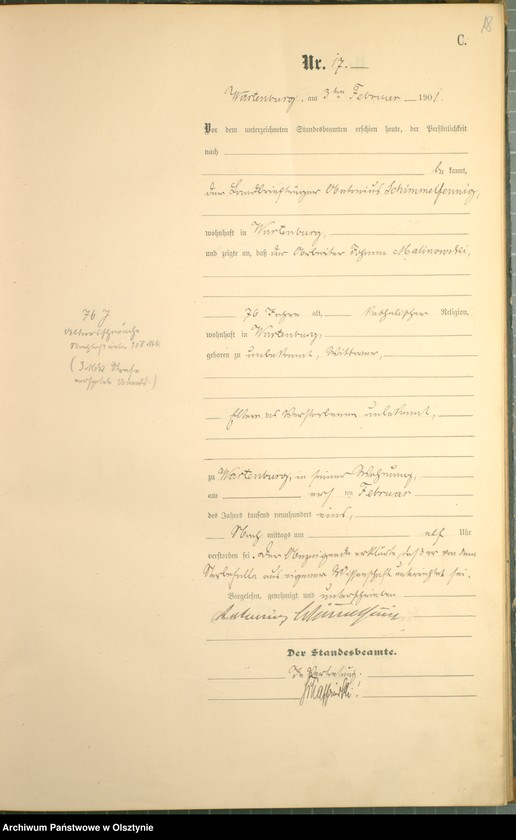 18
C.
Nr. 17.
Wartenburg, am 3ten Februar 1901.
Vor dem unterzeichneten Standesbeamten erschien heute, der Persönlichkeit
nach
be kannt,
der Landbriefträger Antonius Schimmelfennig,
wohnhaft in Wartenburg,
und zeigte an, daß der Arbeiter Johann Malinowski,
76 Jahre alt, katholischer Religion,
wohnhaft in Wartenburg,
geboren zu unbekannt, Wittwer,
76 J
Altersschwäche
(3 Mk Strafe
Eltern des Verstorbenen unbekannt,
zu Wartenburg, in seiner Wohnung,
am ersten Februar
des Jahres tausend neunhundert eins,
Nach mittags um elf Uhr
verstorben sei. Der Anzeigende erklärte, daß er von dem
Sterbefalle aus eigener Wissenschaft unterrichtet sei.
Vorgelesen, genehmigt und unterschrieben
Antonius Schimmelfennig
Der Standesbeamte.
In Vertretung.
Archiwum Państwowe w Olsztynie